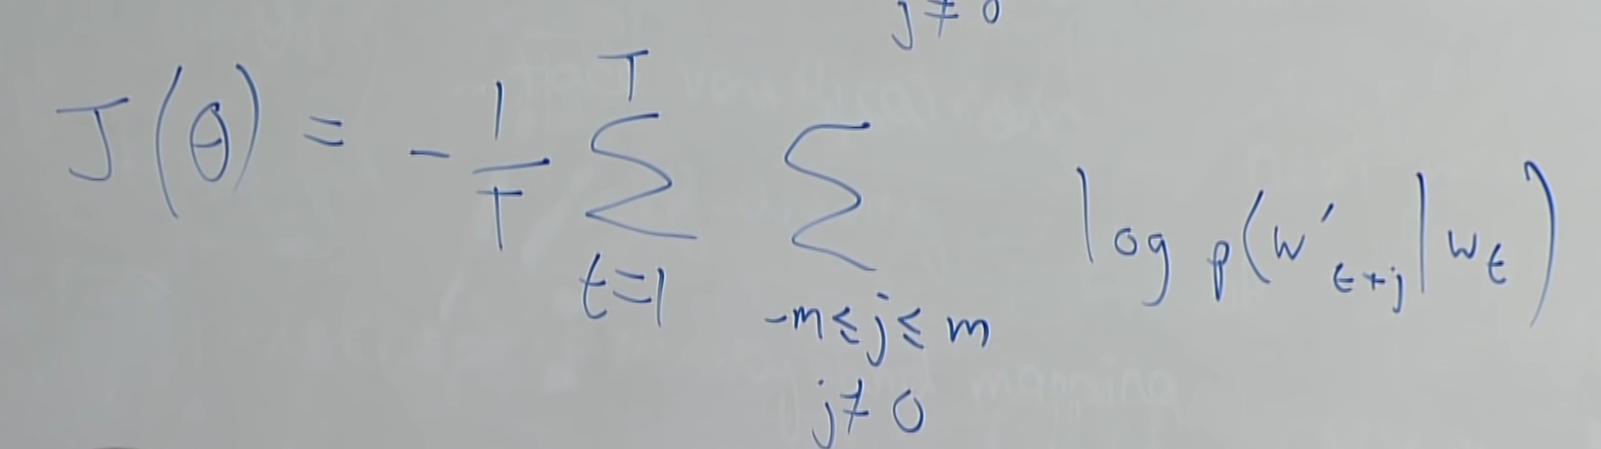 j ≠ 0
J(θ) = - 1/T ∑_{t=1}^{T} ∑_{-m≤j≤m, j≠0} log p(w'_{t+j} | w_t)